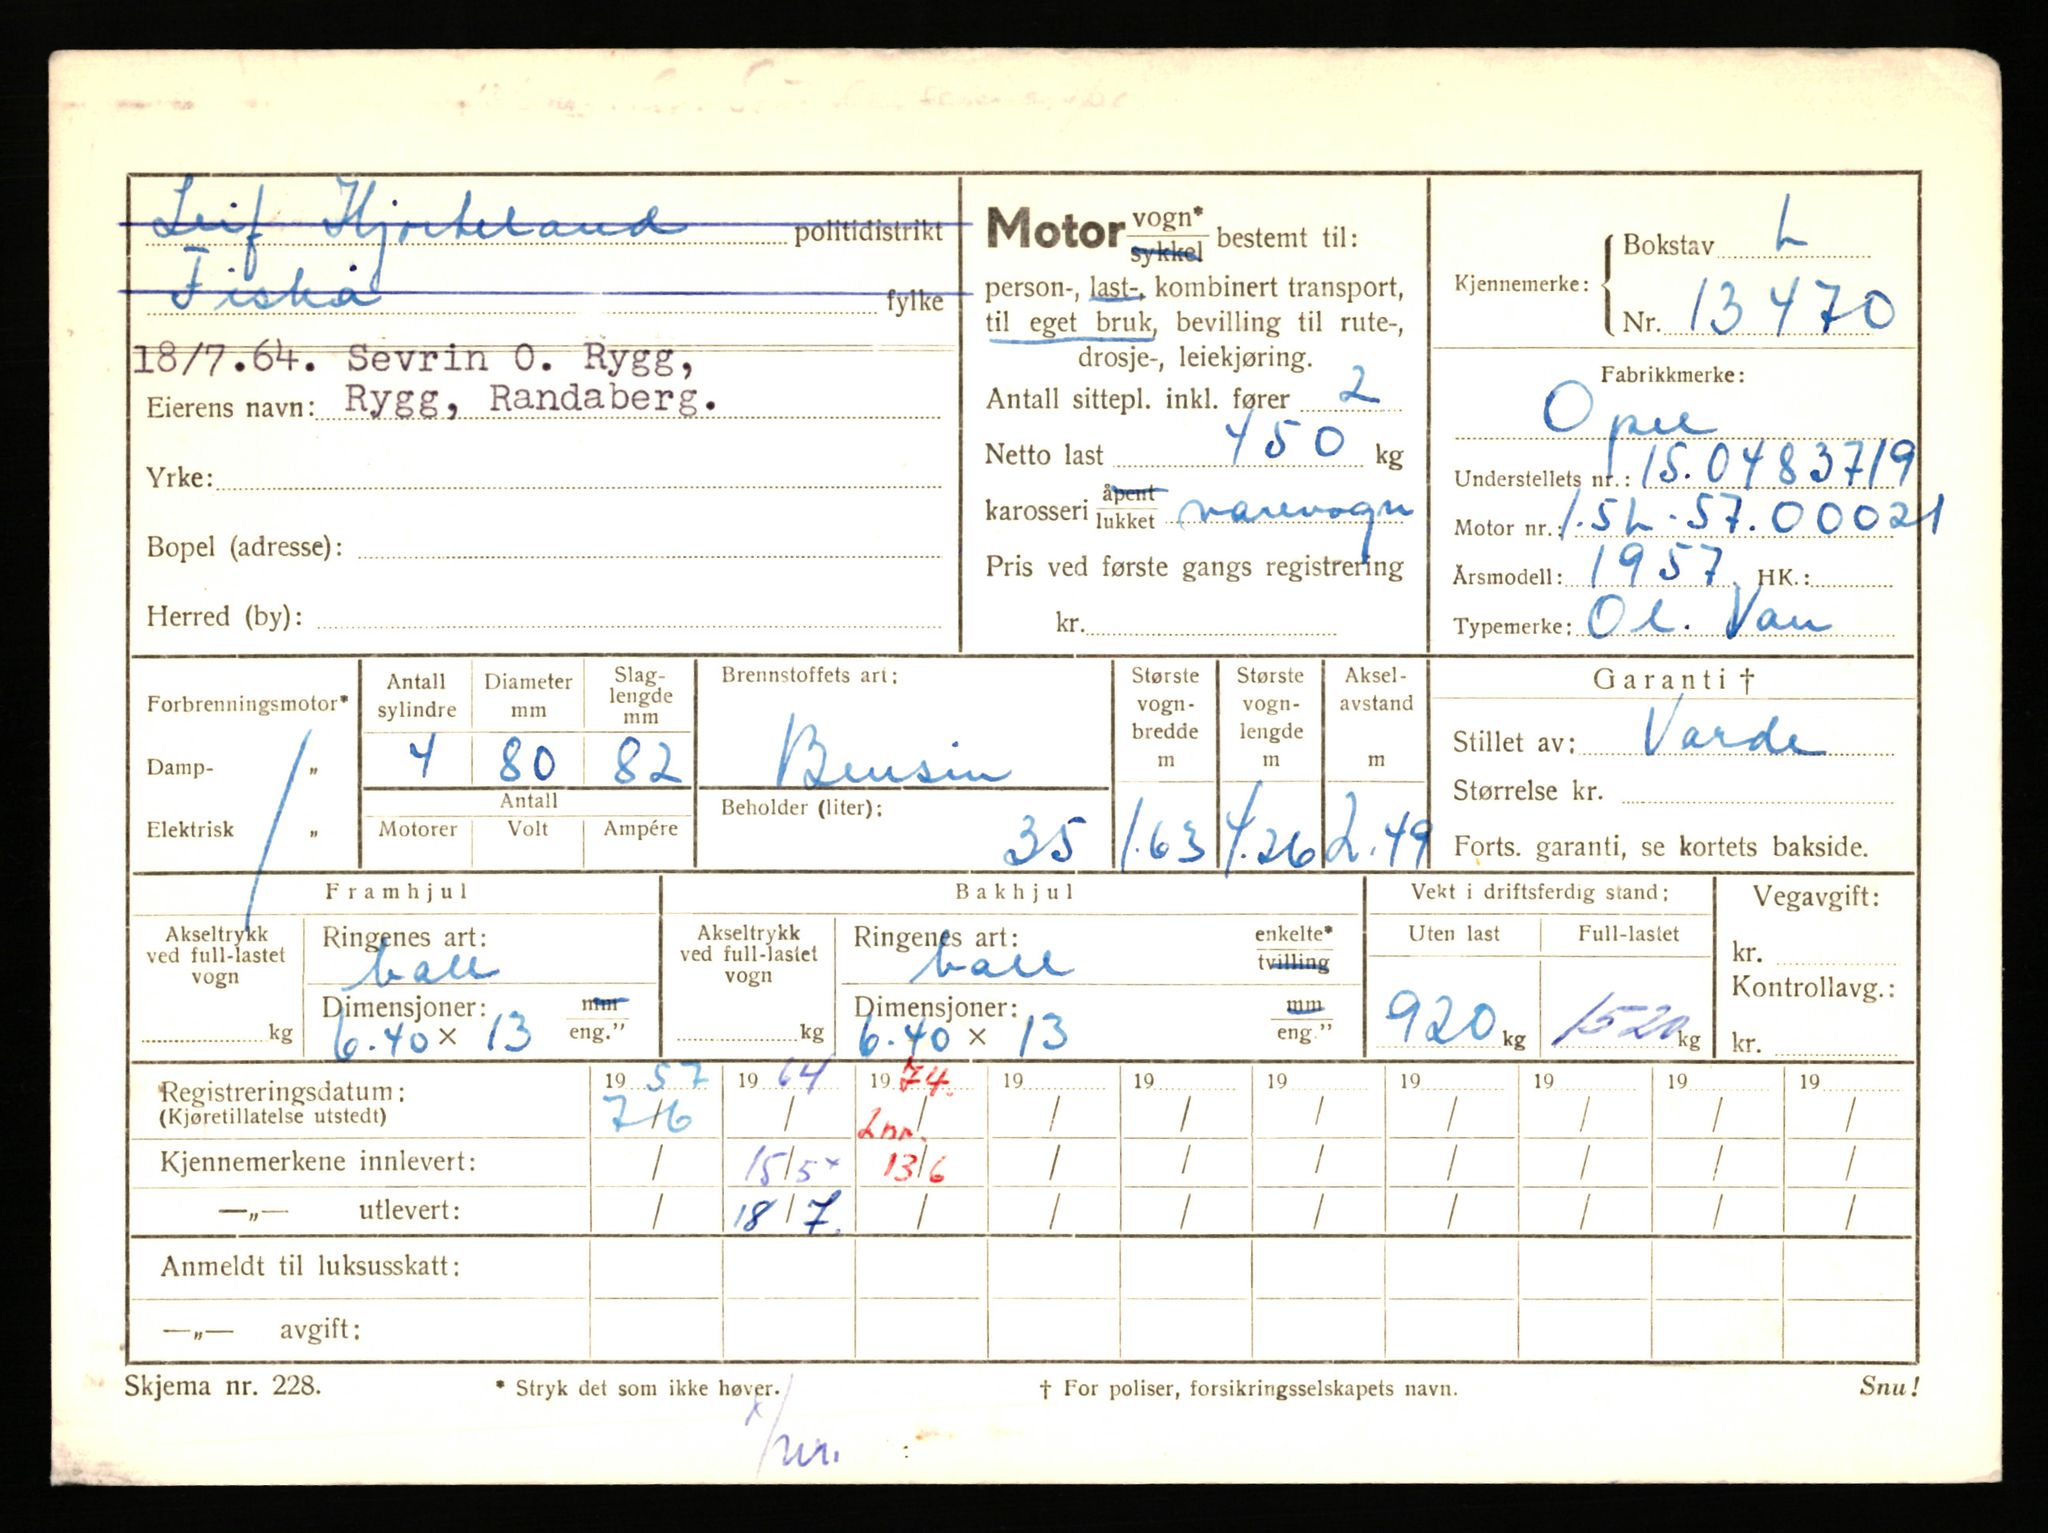 Leif Hjorteland politidistrikt
Fiskå fylke
18/7.64. Sevrin O. Rygg,
Eierens navn: Rygg, Randaberg.
Yrke:
Bopel (adresse):
Herred (by):
Motor vogn* sykkel bestemt til:
person-, last-, kombinert transport,
til eget bruk, bevilling til rute-,
drosje-, leiekjøring.
Antall sittepl. inkl. fører 2
Netto last 450 kg
karosseri åpent lukket varevogn
Pris ved første gangs registrering
kr.
Kjennemerke: Bokstav L
Nr. 13470
Fabrikkmerke:
Opel
Understellets nr.: 15.0483719
Motor nr.: 1.5L-57.00021
Årsmodell: 1957 HK.:
Typemerke: Ol. Van
Forbrenningsmotor*
Damp- „
Elektrisk „
Antall sylindre
4
Diameter mm
80
Slag-
lengde
mm
82
Antall
Motorer Volt Ampére
Brennstoffets art:
Bensin
Beholder (liter):
35
Største
vogn-
bredde
m
1.63
Største
vogn-
lengde
m
4.26
Aksel-
avstand
m
2.49
Garanti †
Stillet av: Varde
Størrelse kr.
Forts. garanti, se kortets bakside.
Framhjul
Akseltrykk
ved full-lastet
vogn
kg
Ringenes art:
ball
Dimensjoner: mm
6.40 x 13 eng."
Bakhjul
Akseltrykk
ved full-lastet
vogn
kg
Ringenes art: enkelte*
ball tvilling
Dimensjoner: mm
6.40 x 13 eng."
Vekt i driftsferdig stand:
Uten last Full-lastet
920 kg 1520 kg
Vegavgift:
kr.
Kontrollavg.:
kr.
Registreringsdatum: 19 57 19 64 19 74. 19 19 19 19 19 19 19
(Kjøretillatelse utstedt) 7/6 / / / / / / / / /
Lnr.
Kjennemerkene innlevert: / 15/5x 13/6 / / / / / / /
—„— utlevert: / 18/7. / / / / / / / /
Anmeldt til luksusskatt:
—„— avgift:
Skjema nr. 228. * Stryk det som ikke høver. † For poliser, forsikringsselskapets navn. Snu!